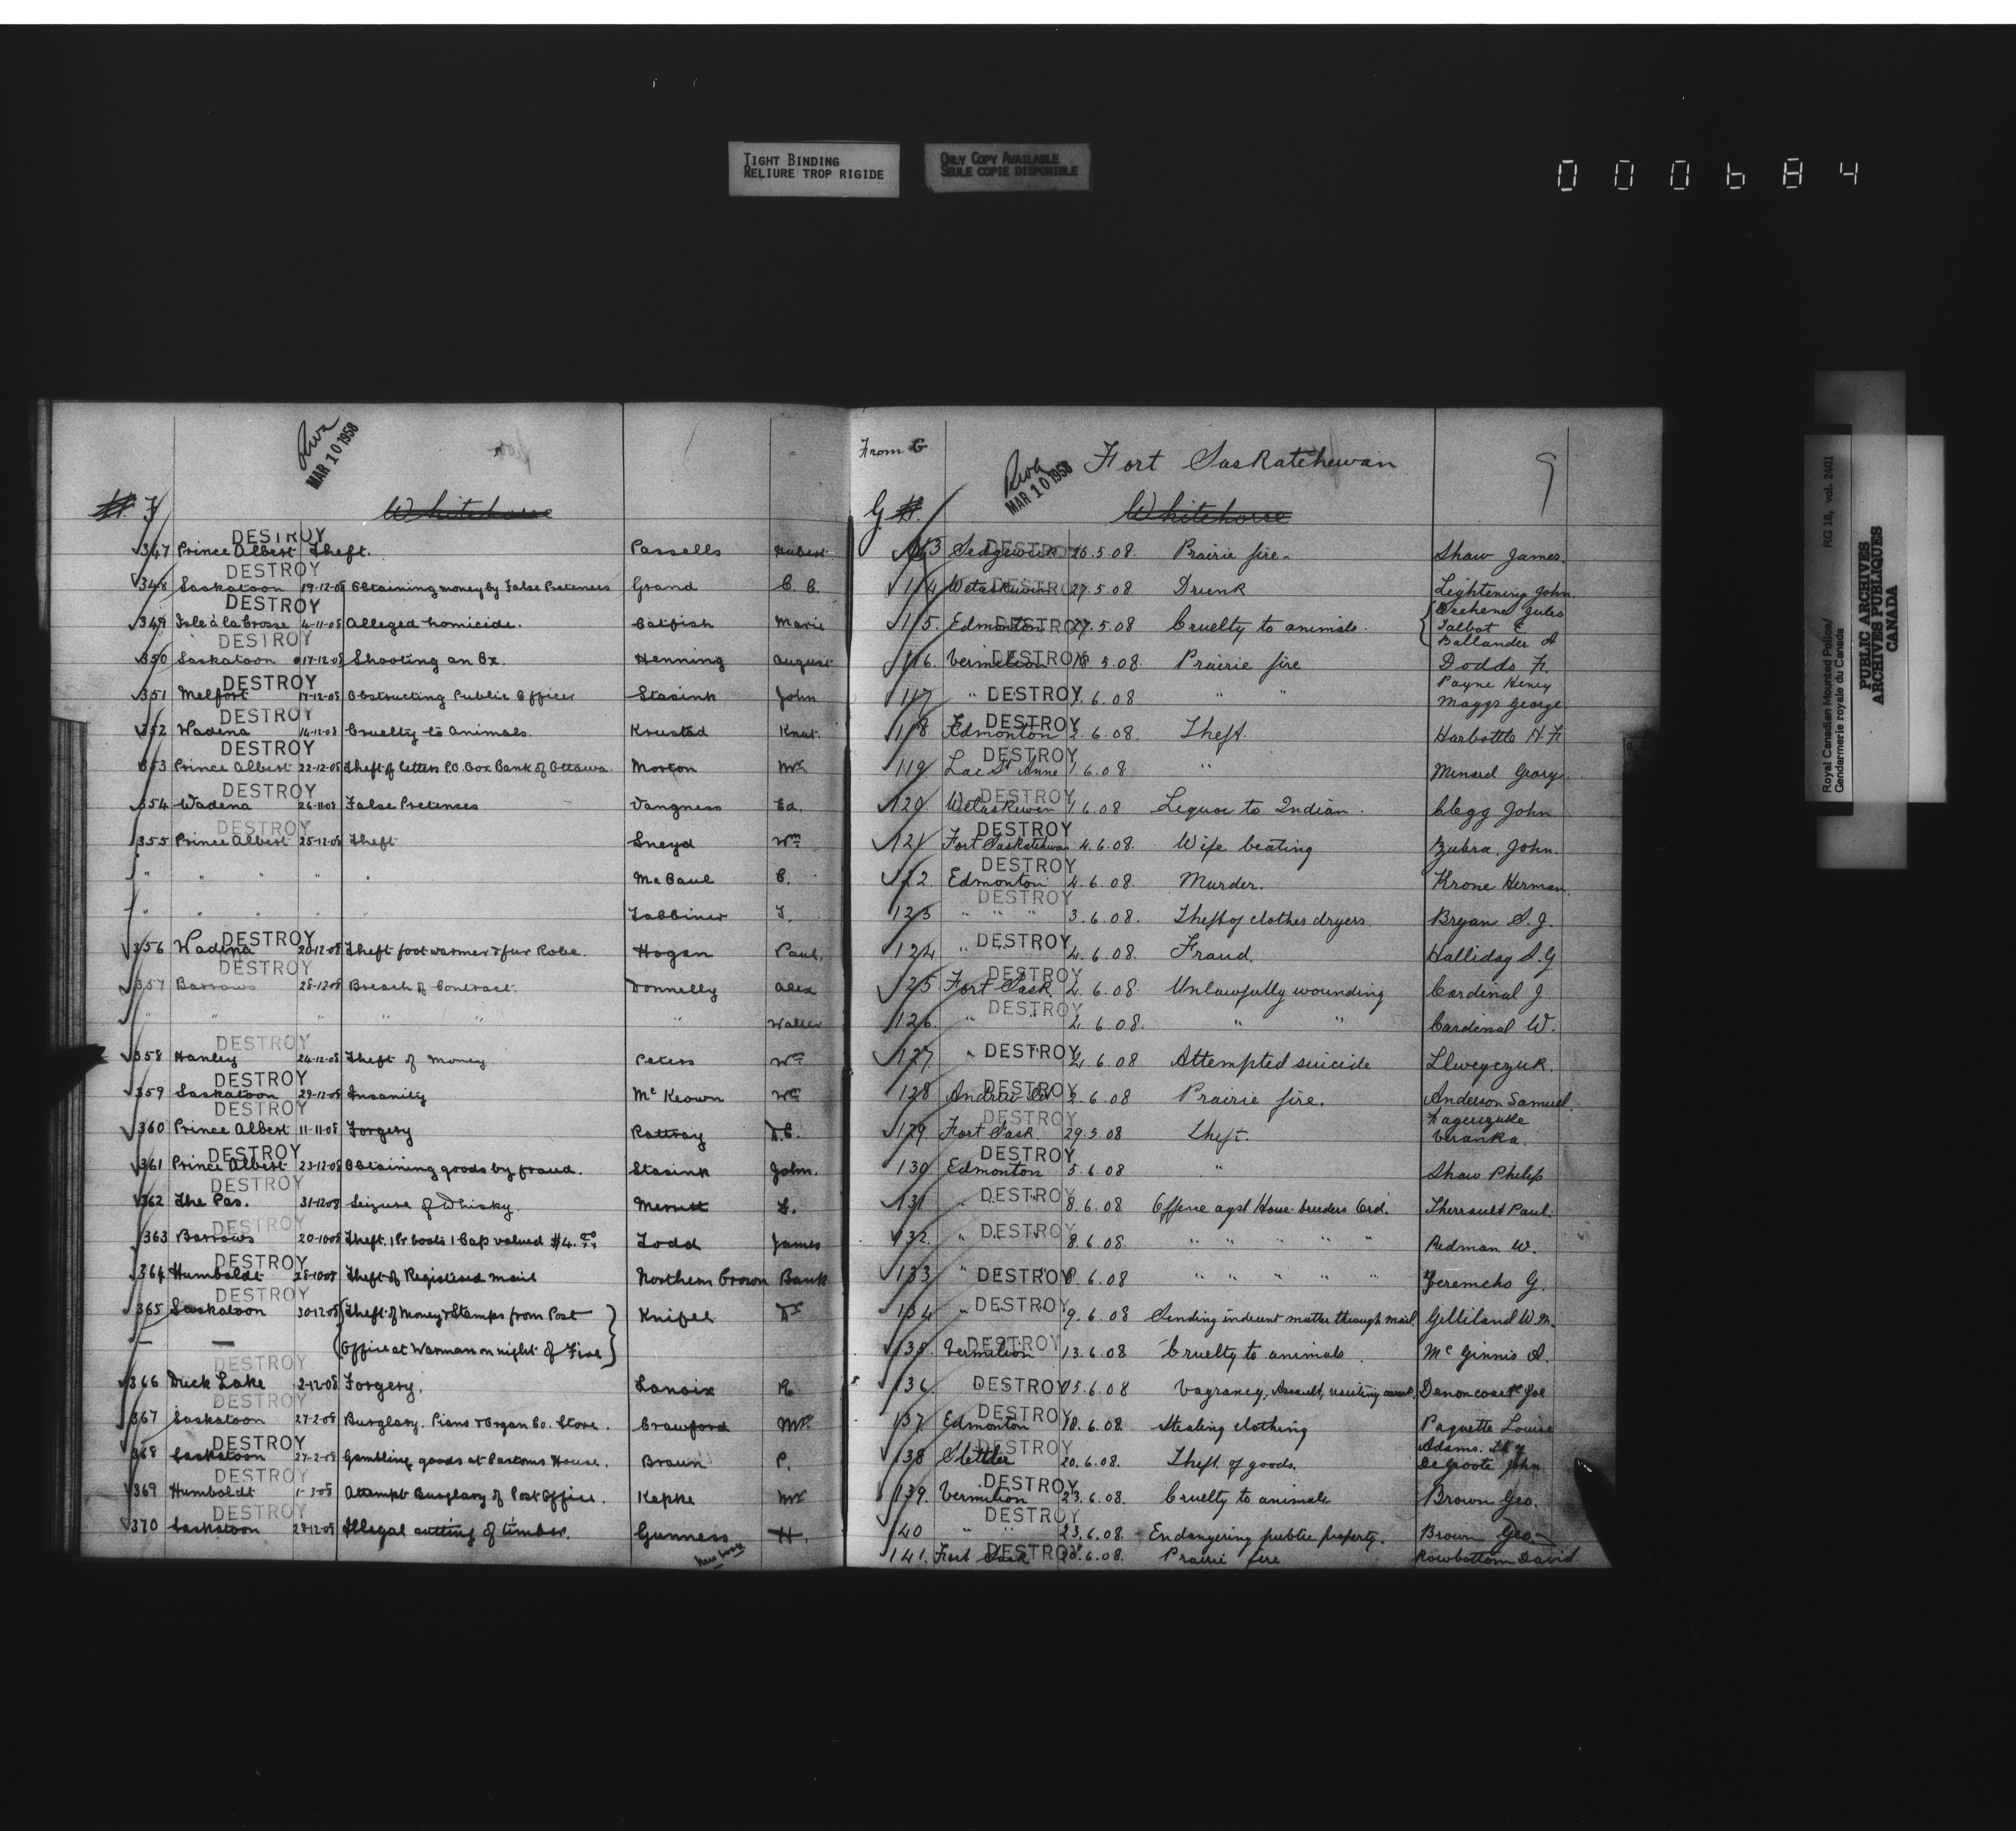 TIGHT BINDING
RELIURE TROP RIGIDE
ONLY COPY AVAILABLE
SEULE COPIE DISPONIBLE
000684
MAR 10 1958
#. F
Whitehorse
DESTROY
347 Prince Albert Theft. Passells Hubert
DESTROY
348 Saskatoon 19-12-08 Obtaining money by False Pretences Grand C. C.
DESTROY
349 Isle à la Crosse 4-11-08 Alleged homicide. Catfish Marie
DESTROY
350 Saskatoon 17-12-08 Shooting an Ox. Henning August
DESTROY
351 Melfort 17-12-08 Obstructing Public Officer Stasink John
DESTROY
352 Wadena 14-12-08 Cruelty to Animals. Krustad Knut.
DESTROY
353 Prince Albert 22-12-08 Theft of letters P.O. Box Bank of Ottawa. Morton Mr.
354 Wadena 26-11-08 False Pretences Vangness Ed.
DESTROY
355 Prince Albert 25-12-08 Theft Sneyd Wm
" " " " " McCaul C.
" " " " " Tabbiner T.
DESTROY
356 Wadena 20-12-08 Theft foot warmer & fur Robe. Hogan Paul.
DESTROY
357 Barrows 28-12-08 Breach of Contract. Donnelly Alex
" " " " " " Walter
DESTROY
358 Hanley 24-12-08 Theft of money Peters Wm
DESTROY
359 Saskatoon 29-12-08 Insanity McKeown Wm
DESTROY
360 Prince Albert 11-11-08 Forgery Rattray D.C.
DESTROY
361 Prince Albert 23-12-08 Obtaining goods by fraud. Stasink John.
DESTROY
362 The Pas. 31-12-08 Seizure of Whisky. Merritt F.
DESTROY
363 Barrows 20-10-08 Theft. 1 Pr boots 1 Cap valued $4. Todd James
DESTROY
364 Humboldt 28-10-08 Theft of Registered mail Northern Crown Bank
DESTROY
365 Saskatoon 30-12-08 Theft of Money & Stamps from Post Knipel Dr
— — Office at Warman on night of Fire
DESTROY
366 Duck Lake 2-12-08 Forgery. Lanoix R
DESTROY
367 Saskatoon 27-2-08 Burglary. Piano & Organ Co. Store. Crawford Mr.
DESTROY
368 Saskatoon 27-2-08 Gambling goods at Customs House. Braun P.
DESTROY
369 Humboldt 1-3-08 Attempt Burglary of Post Office. Kepke Mr
DESTROY
370 Saskatoon 28-12-08 Illegal cutting of timber. Gunness H.
From G
MAR 10 1958
Fort Saskatchewan
9
G #.
Whitehorse
DESTROY
113 Sedgewick 26.5.08. Prairie fire. Shaw James.
DESTROY
114 Wetaskiwin 27.5.08. Drunk Lightening John
DESTROY
115. Edmonton 27.5.08 Cruelty to animals. Dechene Jules
Talbot E.
Ballander A
DESTROY
116. Vermilion 5.08. Prairie fire Dodds F.
DESTROY
Payne Henry
117 " 1.6.08 " " Maggs George
DESTROY
118 Edmonton 2.6.08. Theft. Harbottle H.F
DESTROY
119. Lac St Anne 1.6.08. " Menard George
DESTROY
120. Wetaskiwin 1.6.08 Liquor to Indian. Clegg John
DESTROY
121 Fort Saskatchewan 4.6.08. Wife beating Zubra, John.
DESTROY
122. Edmonton 4.6.08. Murder. Krone Herman.
DESTROY
123 " " " 3.6.08. Theft of clothes dryers Bryan S.J.
DESTROY
124. " 4.6.08. Fraud. Halliday S.G
DESTROY
125. Fort Sask 2.6.08. Unlawfully wounding Cardinal J.
DESTROY
126. " 2.6.08. " " Cardinal W.
DESTROY
127. " 2.6.08 Attempted suicide
DESTROY
128 Andrew 2.6.08 Prairie fire. Anderson Samuel.
DESTROY
129. Fort Sask 29.5.08 Theft. Veranka.
DESTROY
130. Edmonton 5.6.08 " Shaw Philip
DESTROY
131 " 8.6.08 Offence agst Horse-breeders Ord. Therrault Paul.
DESTROY
132. " 8.6.08. " " " " " Redman W.
DESTROY
133 " 8.6.08 " " " " " Jeremcho G.
DESTROY
134 " 9.6.08 Sending indecent matter through mail. Gilliland W.M.
DESTROY
135. Vermilion 13.6.08 Cruelty to animals. McGinnis A.
DESTROY
136. 15.6.08 Vagrancy, Assault, resisting arrest. Denoncourt Joe
DESTROY
137. Edmonton 18.6.08. Stealing clothing Paquette Louise
DESTROY
Adams.
138 Stettler 20.6.08. Theft of goods. DeGroote John.
DESTROY
139. Vermilion 23.6.08. Cruelty to animals Brown Geo.
DESTROY
140 " " 23.6.08. Endangering public property. Brown Geo.
DESTROY
141. Fort Sask 20.6.08. Prairie fire Rowbottom David
Royal Canadian Mounted Police/ RG 18, vol. 2401
Gendarmerie royale du Canada
PUBLIC ARCHIVES
ARCHIVES PUBLIQUES
CANADA